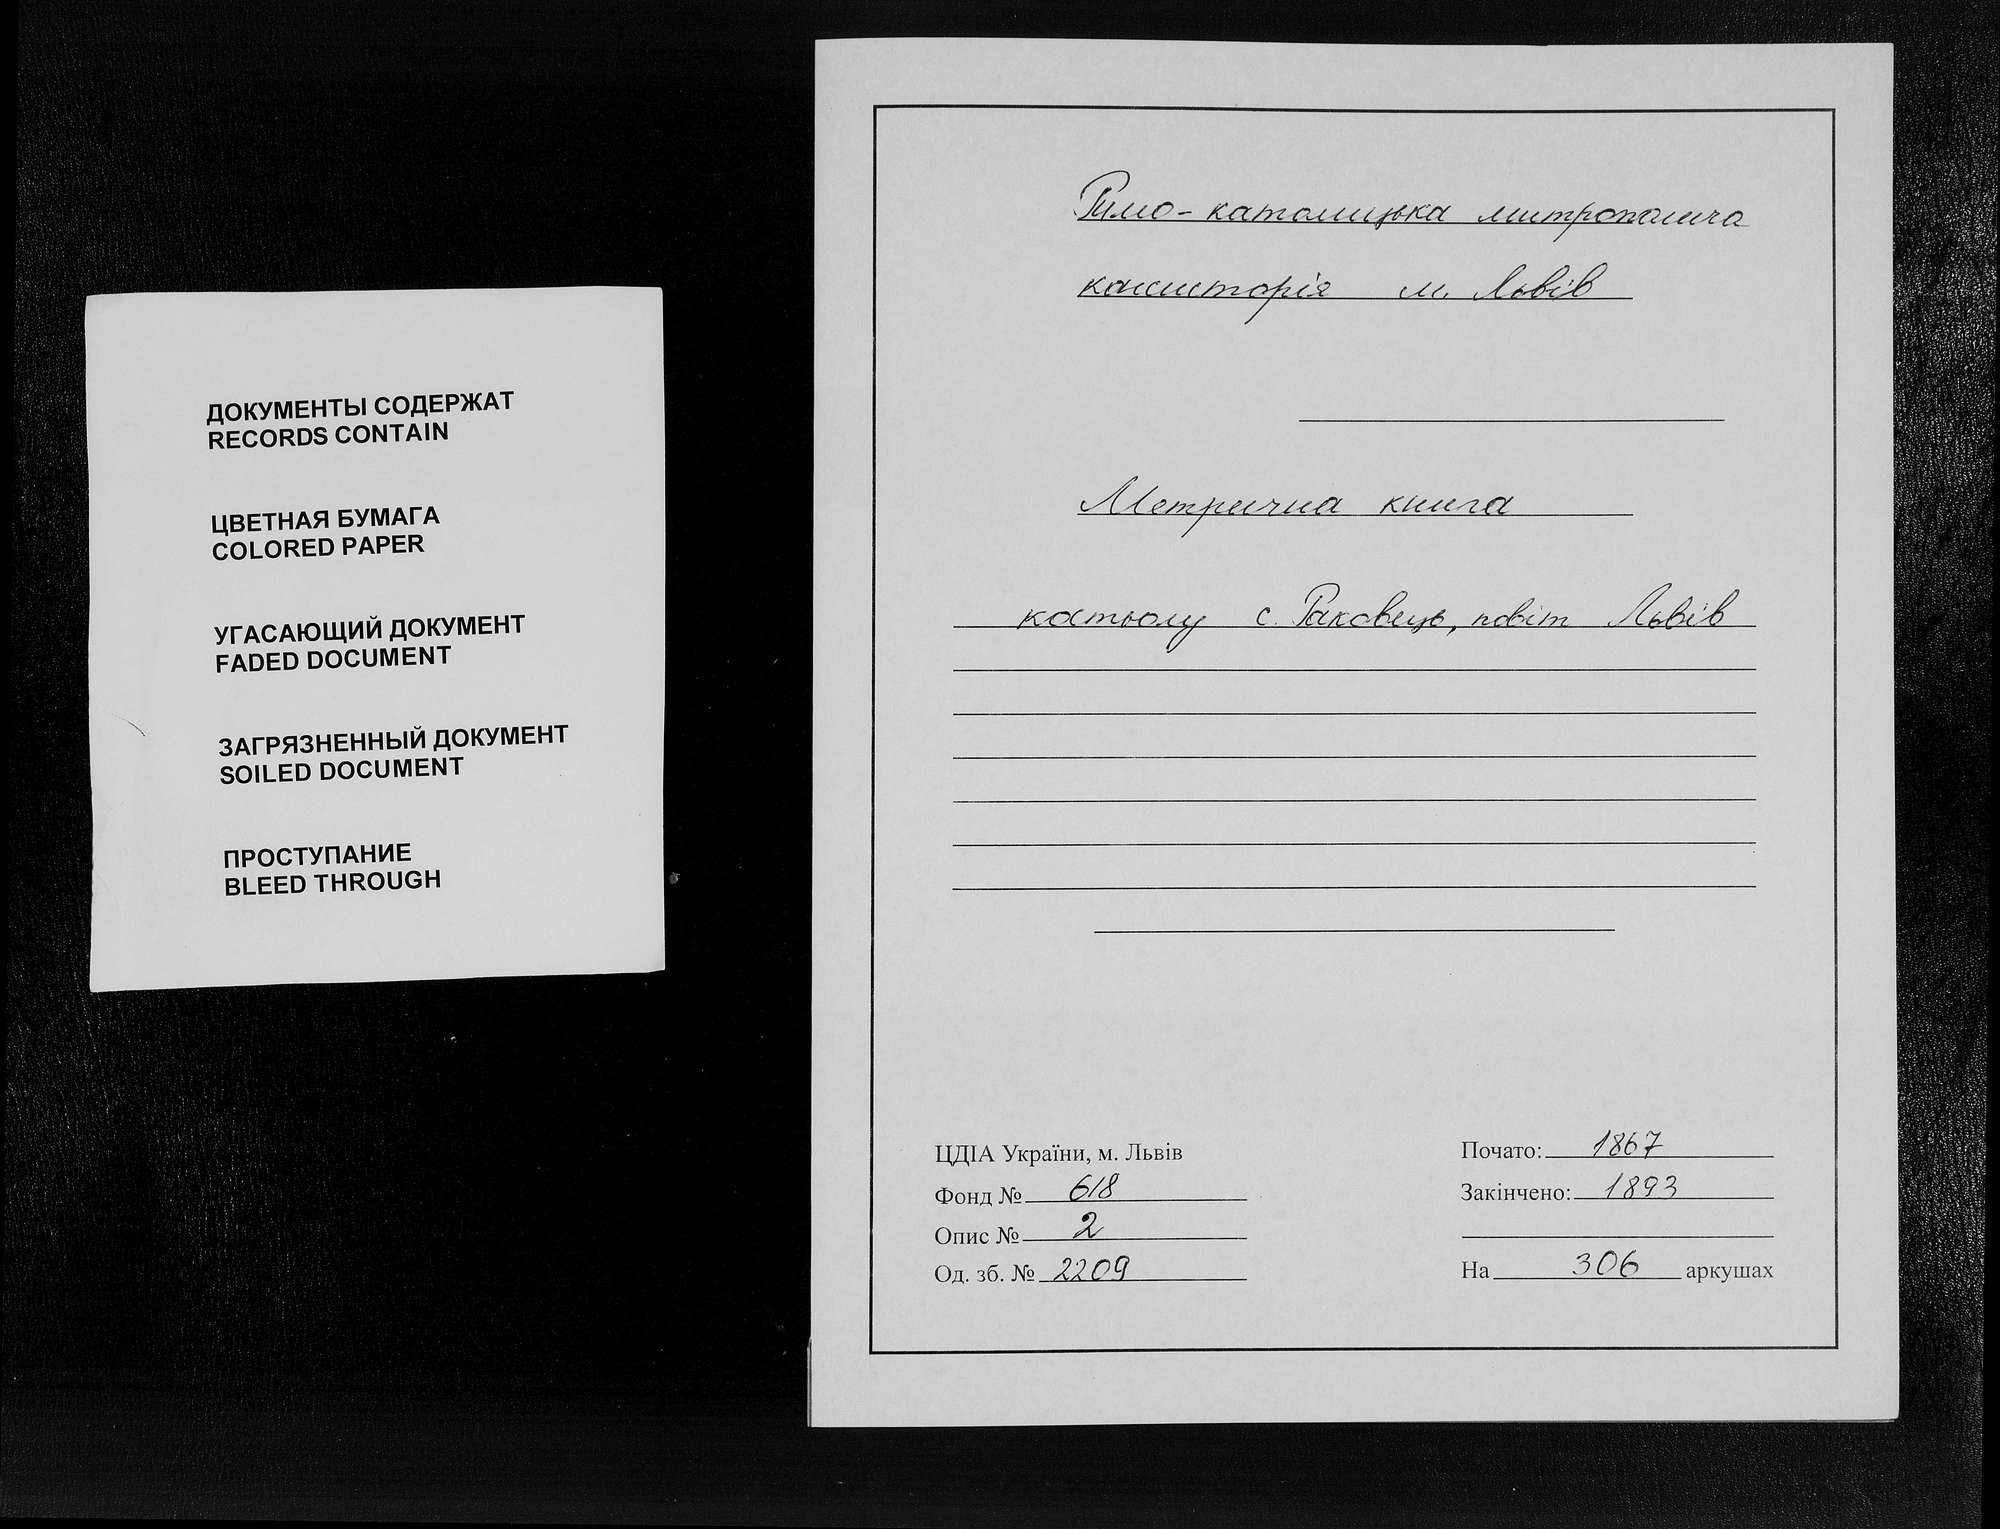 ДОКУМЕНТЫ СОДЕРЖАТ
RECORDS CONTAIN
ЦВЕТНАЯ БУМАГА
COLORED PAPER
УГАСАЮЩИЙ ДОКУМЕНТ
FADED DOCUMENT
ЗАГРЯЗНЕННЫЙ ДОКУМЕНТ
SOILED DOCUMENT
ПРОСТУПАНИЕ
BLEED THROUGH
Римо-католицька митрополича
консисторія м. Львів
Метрична книга
костьолу с. Раковець, повіт Львів
ЦДІА України, м. Львів
Фонд № 618
Опис № 2
Од. зб. № 2209
Почато: 1867
Закінчено: 1893
На 306 аркушах